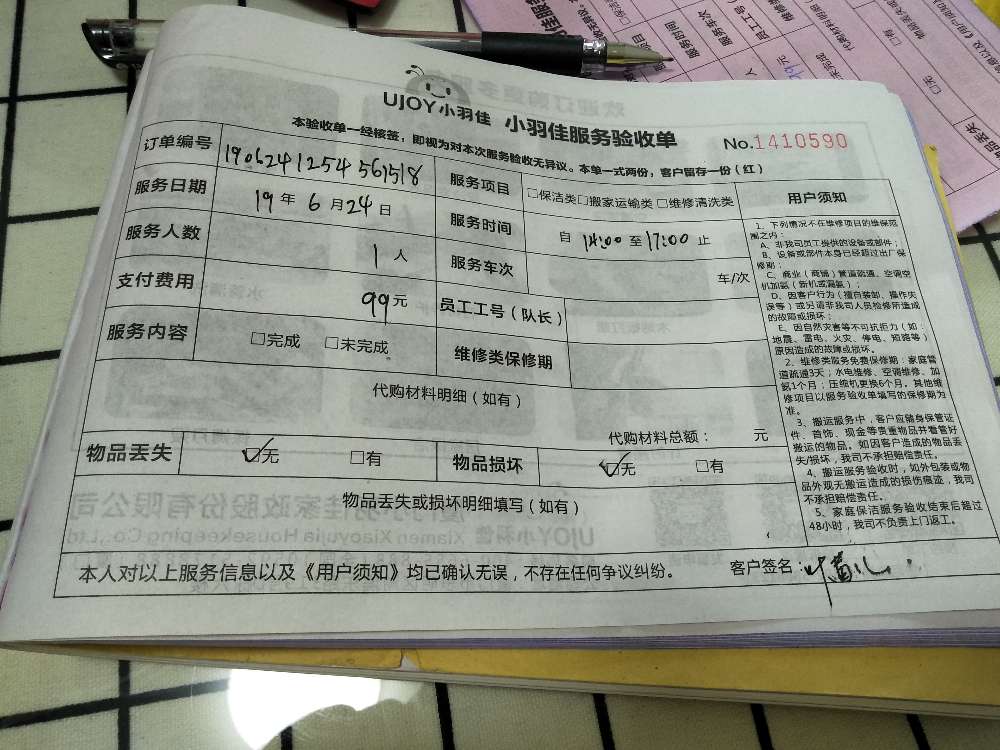 UJOY小羽佳 小羽佳服务验收单 No.1410590
本验收单一经核签，即视为对本次服务验收无异议。本单一式两份，客户留存一份（红）
订单编号 190624125456151​8 服务项目 □保洁类□搬家运输类 □维修清洗类 用户须知
服务日期 19 年 6 月 24 日 服务时间 自 14:00 至 17:00 止
服务人数 1 人 服务车次 车/次
支付费用 99 元 员工工号（队长）
服务内容 □完成 □未完成 维修类保修期
代购材料明细（如有）
代购材料总额： 元
物品丢失 ☑无 □有 物品损坏 ☑无 □有
物品丢失或损坏明细填写（如有）
本人对以上服务信息以及《用户须知》均已确认无误，不存在任何争议纠纷。 客户签名：
1、下列情况不在维修项目的维保范
围之内：
A、非我司员工提供的设备或部件；
B、设备或部件本身已经超过出厂保
修期；
C、商业（商铺）管道疏通、空调空
机加氨（新机或漏氨）；
D、因客户行为（擅自装卸、操作失
误等）或另请非我司人员检修所造成
的故障或损坏；
E、因自然灾害等不可抗拒力（如：
地震、雷电、火灾、停电、短路等）
原因造成的故障或损坏。
2、维修类服务免费保修期：家庭管
道疏通3天；水电维修、空调维修、加
氨1个月；压缩机更换6个月。其他维
修项目以服务验收单填写的保修期为
准。
3、搬运服务中，客户应随身保管证
件、首饰、现金等贵重物品并看管好
搬运的物品。如因客户造成的物品丢
失/损坏，我司不承担赔偿责任。
4、搬运服务验收时，如外包装或物
品外观无搬运造成的损伤痕迹，我司
不承担赔偿责任。
5、家庭保洁服务验收结束后超过
48小时，我司不负责上门返工。